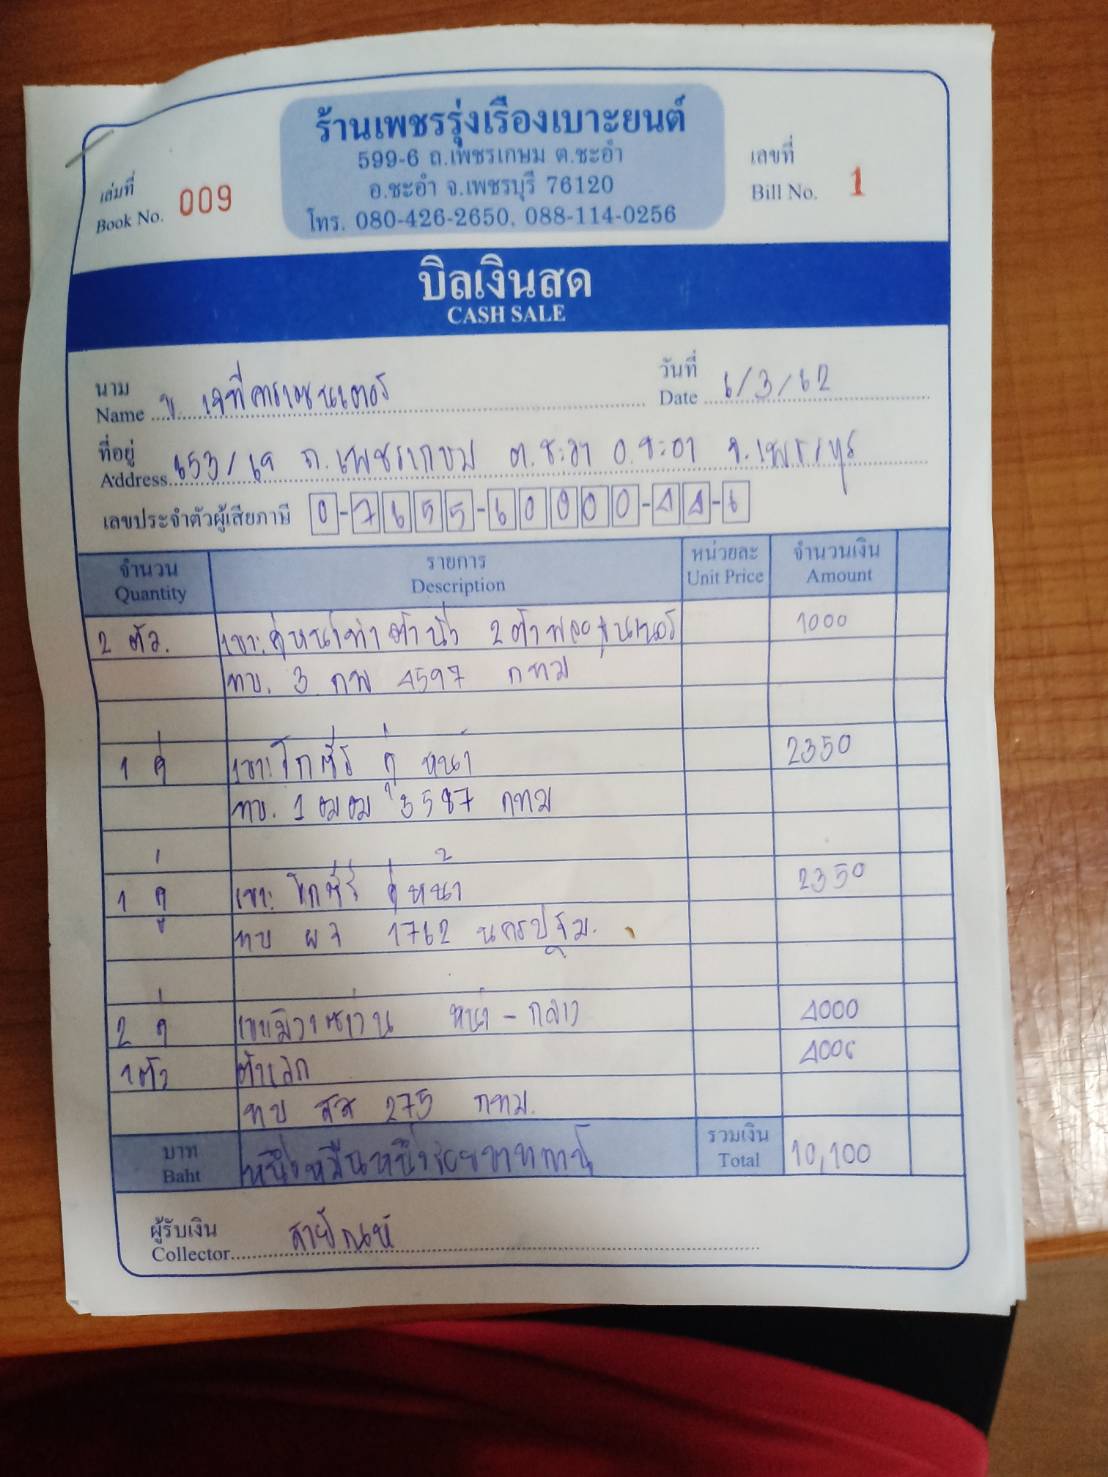 ร้านเพชรรุ่งเรืองเบาะยนต์
599-6 ถ.เพชรเกษม ต.ชะอำ
อ.ชะอำ จ.เพชรบุรี 76120
โทร. 080-426-2650, 088-114-0256
เล่มที่
Book No. 009
เลขที่
Bill No. 1
บิลเงินสด
CASH SALE
นาม
Name
วันที่
Date 6/3/62
ที่อยู่
Address 653/69 ถ.เพชรเกษม ต.ชะอำ อ.ชะอำ จ.เพชรบุรี
เลขประจำตัวผู้เสียภาษี 0-7655-60000-44-6
จำนวน รายการ หน่วยละ จำนวนเงิน
Quantity Description Unit Price Amount
2 ตัว. 2 ตัว 1000
ทบ. 3 กพ 4597 กทม
1 คู่ คู่ หน้า 2350
ทบ. 1 ฒฒ 3587 กทม
1 คู่ คู่หน้า 2350
ทบ ผจ 1762 นครปฐม.
2 คู่ หน้า - กลาง 4000
1 ตัว ตัวเล็ก 400
ทบ 275 กทม.
บาท
Baht หนึ่งหมื่นหนึ่งร้อยบาทถ้วน
รวมเงิน
Total 10,100
ผู้รับเงิน
Collector สายัณห์